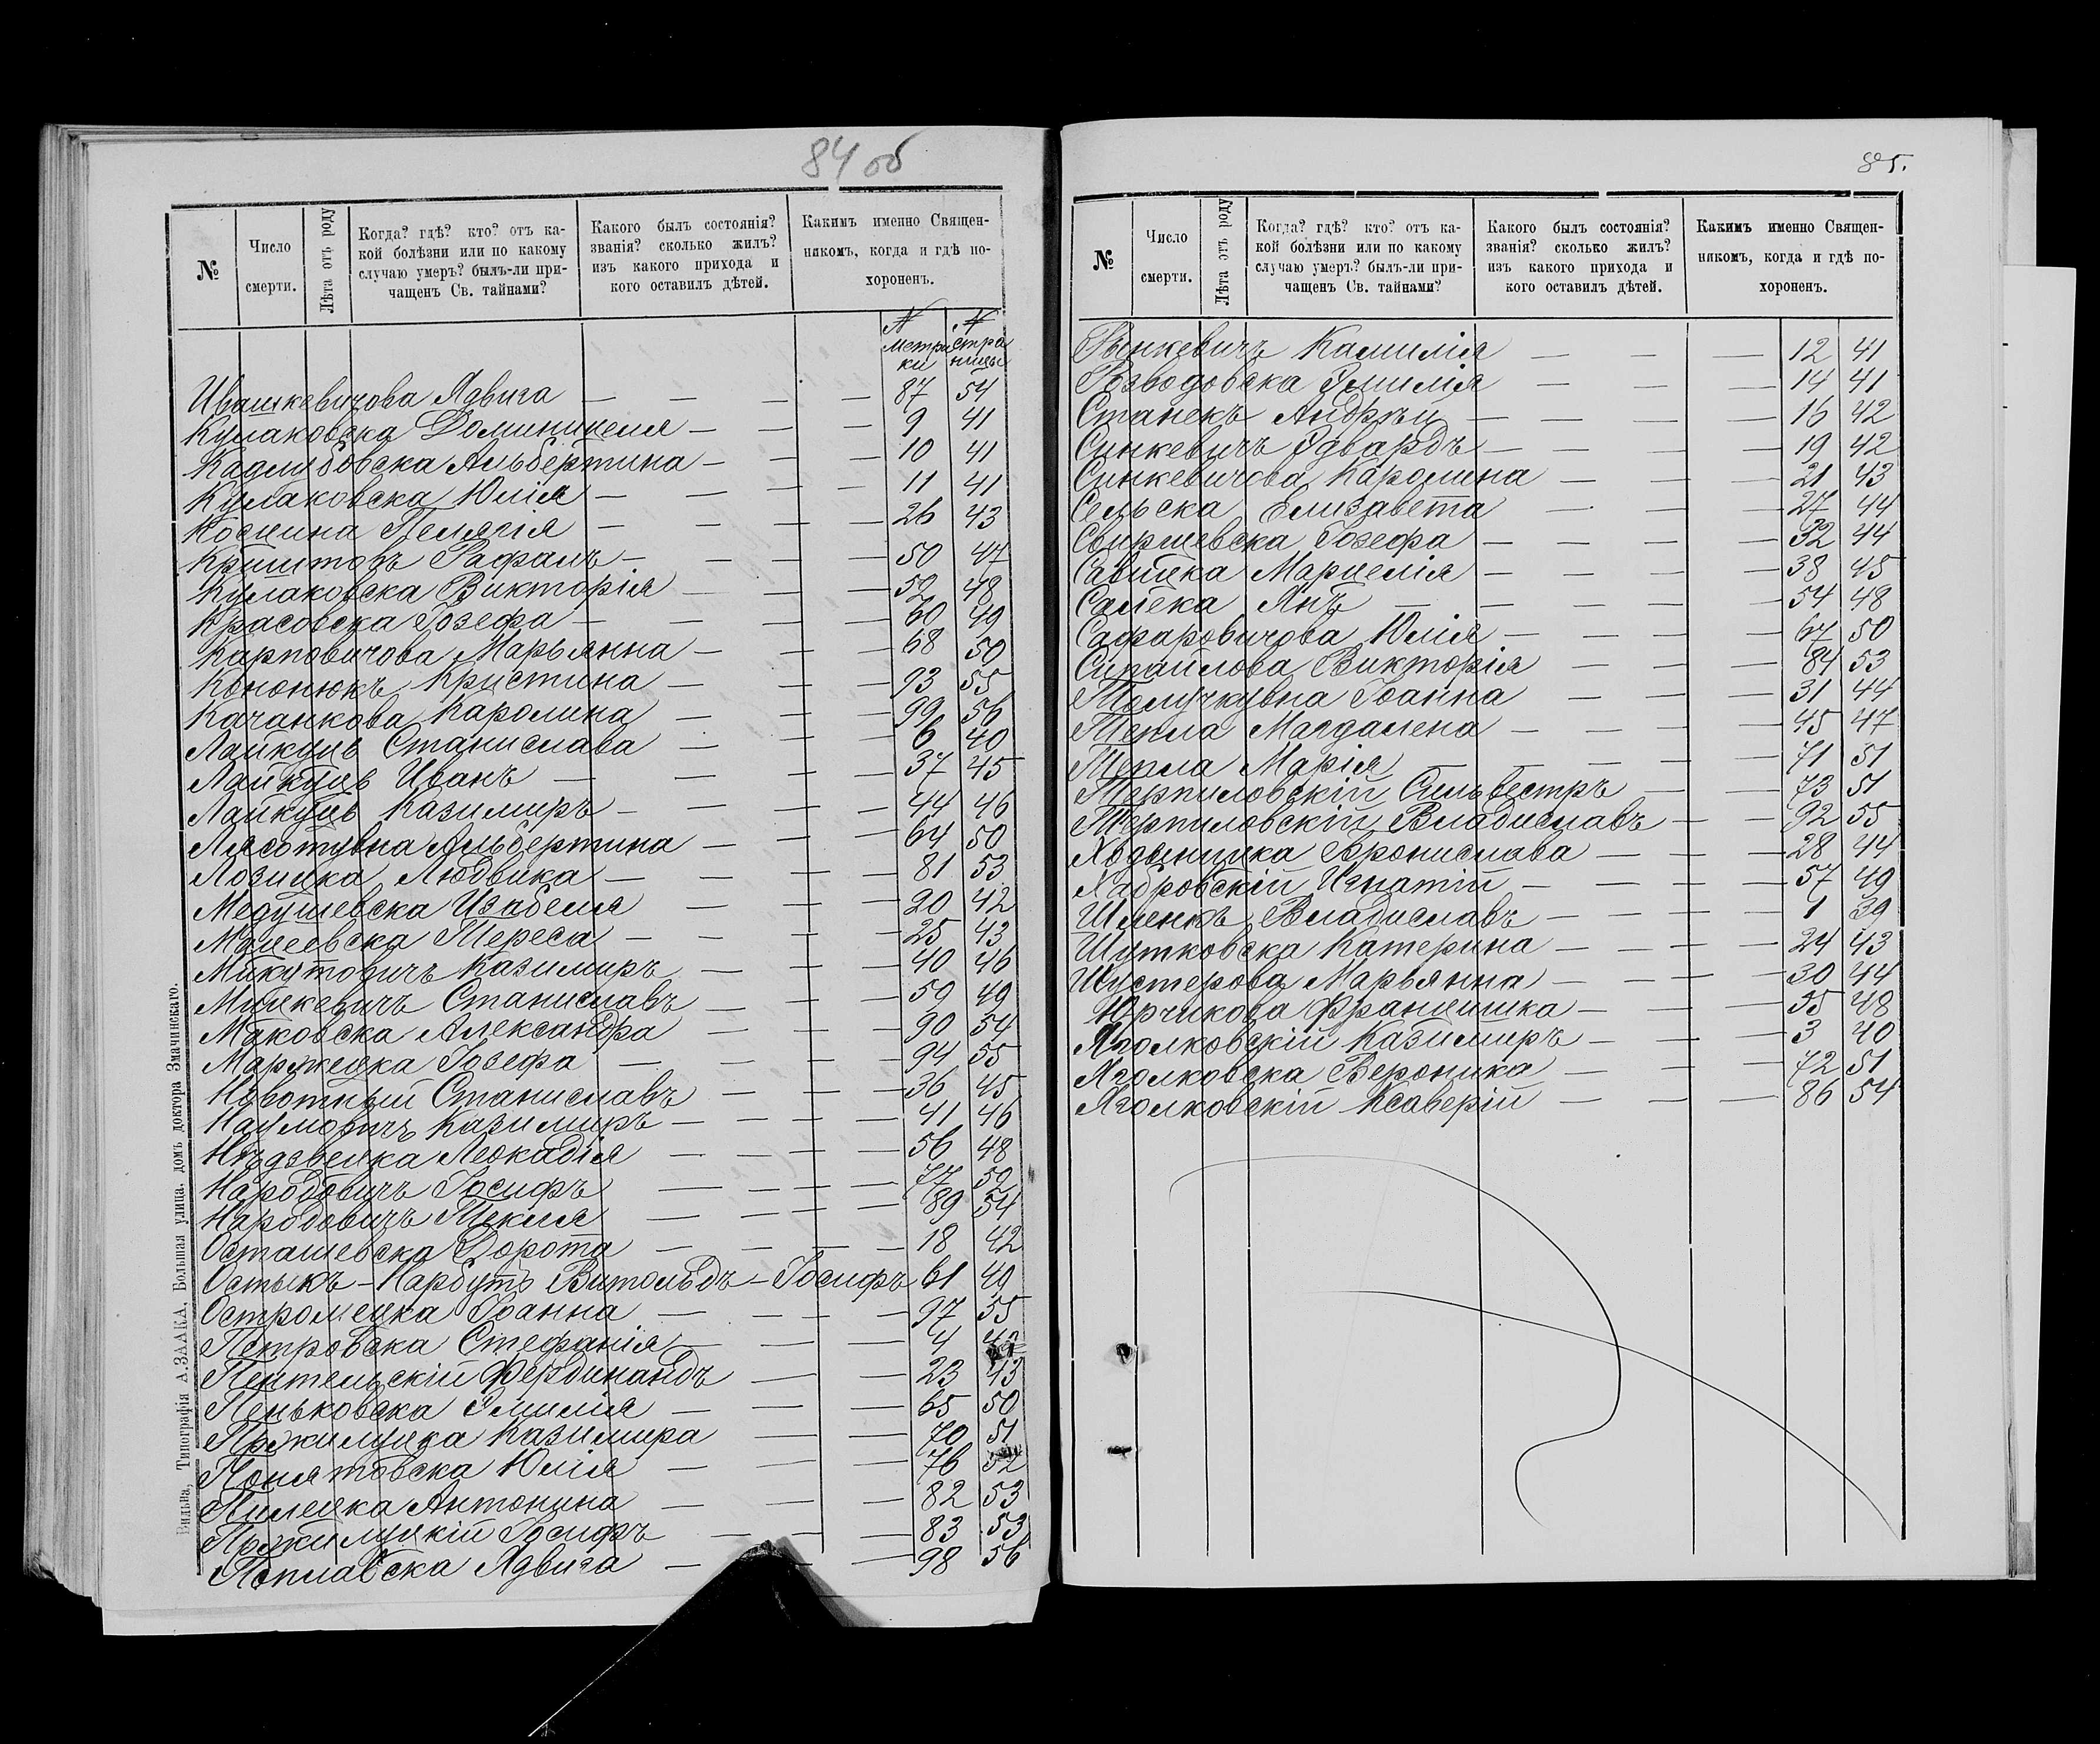 84 об
№
Число смерти.
Лѣта отъ роду
Когда? гдѣ? кто? отъ ка-
кой болѣзни или по какому
случаю умеръ? былъ-ли при-
чащенъ Св. тайнами?
Какого былъ состоянія?
званія? сколько жилъ?
изъ какого прихода и
кого оставилъ дѣтей.
Какимъ именно Священ-
никомъ, когда и гдѣ по-
хороненъ.
№ метри ки № стра ницы
Ивашкевичова Ядвига — — — — 87 54
Кулаковска Доминицеля — — — 9 41
Кадлубовска Альбертина — — — 10 41
Кулаковска Юлія — — — — 11 41
Коснина Пелягія — — — — 26 43
Криштовъ Рафалъ — — — — 50 47
Кулаковска Викторія — — — 52 48
Красовска Іозефа — — — — 60 49
Карповичова Марьянна — — — 68 50
Кононюкъ Кристина — — — 93 55
Качанкова Каролина — — — 99 56
Лайкуць Станислава — — — 6 40
Лайкуць Иванъ — — — — 37 45
Лайкуць Казимиръ — — — — 44 46
Лясотувна Альбертина — — — 64 50
Лозицка Людвика — — — — 81 53
Медушевска Изабеля — — — 20 42
Мацеевска Тереса — — — — 25 43
Микутовичъ Казимиръ — — — 40 46
Мицкевичъ Станиславъ — — — 59 49
Маковска Александра — — — 90 54
Маржецка Іозефа — — — — 94 55
Новотный Станиславъ — — — 36 45
Наумовичъ Казимиръ — — — — 41 46
Нѣдзвецка Леокадія — — — — 56 48
Нарбовичъ Іосифъ — — — — 77 52
Нарбовичъ Текля — — — — 89 54
Осташевска Дорота — — — — 18 42
Остыкъ-Нарбутъ Витольдъ-Іосифъ 61 49
Остромецка Іоанна — — — — 97 55
Петровска Стефанія — — — 4
Пентельскій Фердинандъ — — — 23 43
Пеньковска Эмилія — — — 65 50
Пржилуцка Казимира — — — 70 51
Понятовска Юлія — — — 76 52
Пилецка Антонина — — — 82 53
Пржилуцкій Іосифъ — — — 83 53
Поплавска Ядвига — — — 98 56
Вильна, Типографія А.ЗААКА. Большая улица, домъ доктора Змачинскаго.
85.
№
Число смерти.
Лѣта отъ роду
Когда? гдѣ? кто? отъ ка-
кой болѣзни или по какому
случаю умеръ? былъ-ли при-
чащенъ Св. тайнами?
Какого былъ состоянія?
званія? сколько жилъ?
изъ какого прихода и
кого оставилъ дѣтей.
Какимъ именно Священ-
никомъ, когда и гдѣ по-
хороненъ.
Рынкевичъ Камилія — — — 12 41
Розводовска Эмилія — — — 14 41
Станекъ Андрѣй — — — — 16 42
Синкевичъ Эдвардъ — — — — 19 42
Синкевичова Каролина — — — 21 43
Сельска Елизавета — — — 27 44
Свиршевска Іозефа — — — — 32 44
Савицка Марцелія — — — — 38 45
Салека Янъ — — — — 54 48
Сафаровичова Юлія — — — — 67 50
Сипайлова Викторія — — — 84 53
Толучкувна Іоанна — — — 31 44
Тепла Магдалена — — — — 45 47
Тепла Марія — — — — 71 51
Терпиловскій Сильвестръ — — 73 51
Терпиловскій Владиславъ — — 92 55
Ходыницка Брониславa — — — 28 44
Хабровскій Игнатій — — — — 57 49
Шленкъ Владиславъ — — — — 1 39
Шутковска Катерина — — — — 24 43
Шустерова Марьянна — — — — 30 44
Юрчикова Францишка — — — 55 48
Яголковскій Казимиръ — — — 3 40
Яголковска Вероника — — — 72 51
Яголковскій Ксаверій — — — 86 54